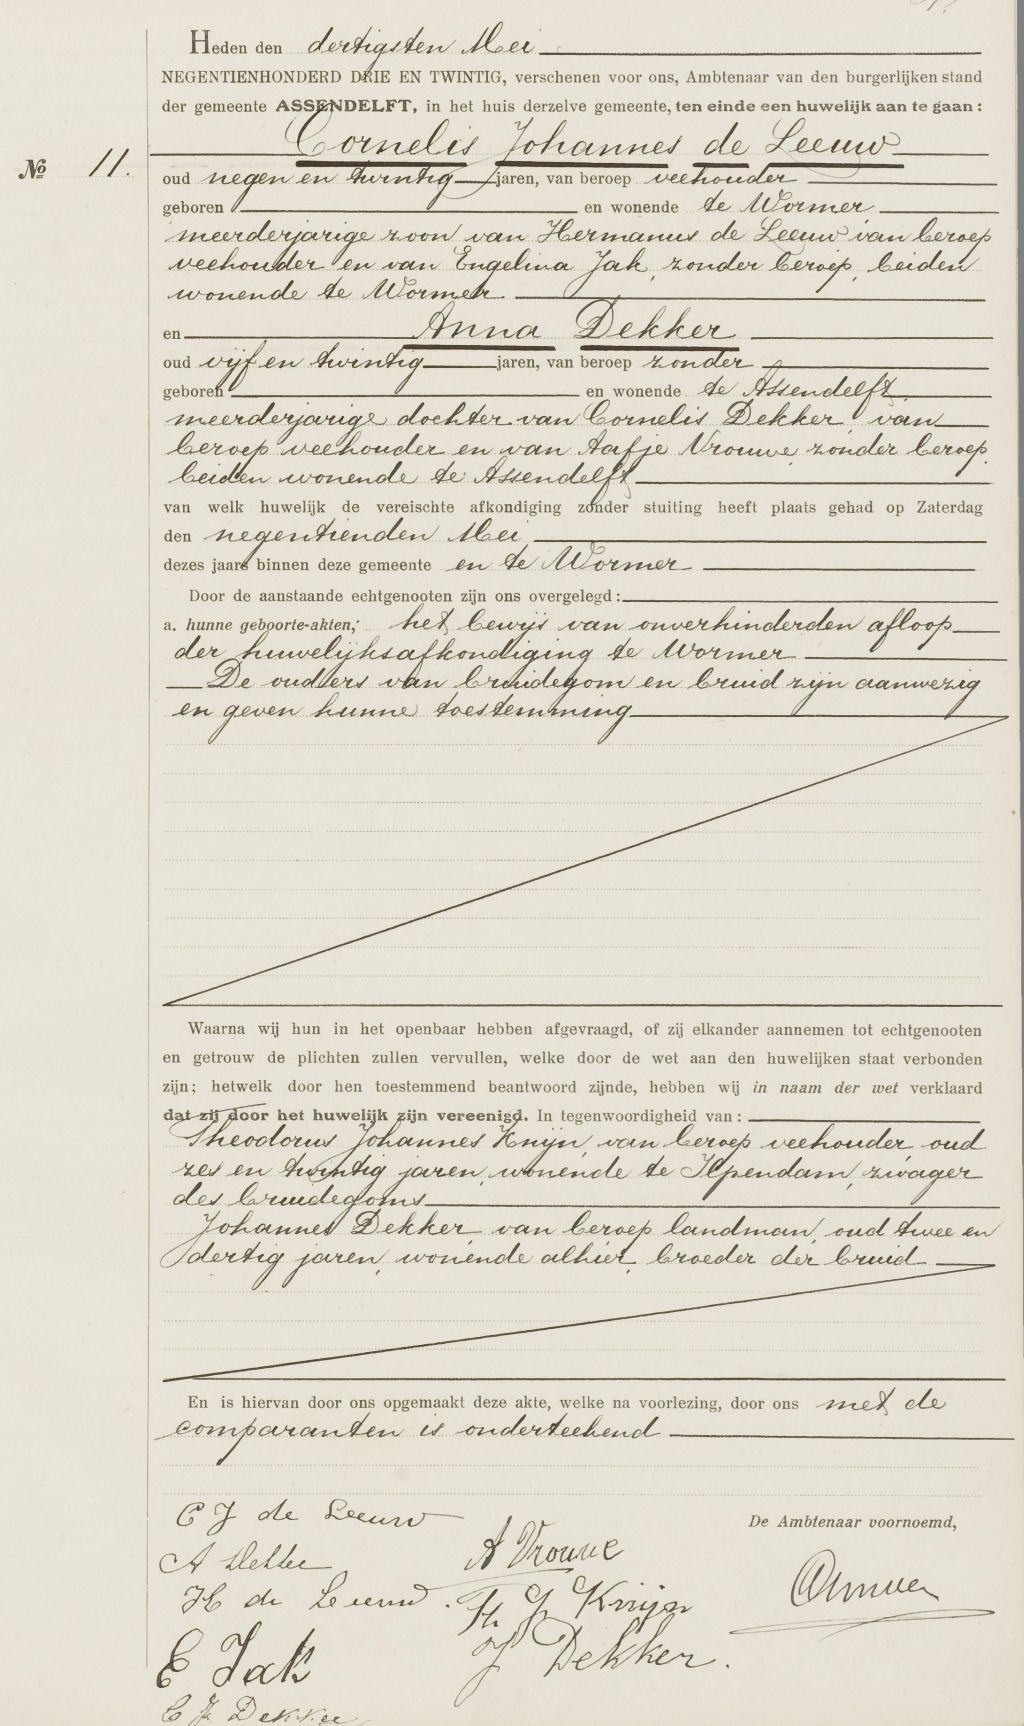 Heden den dertigsten Mei
NEGENTIENHONDERD DRIE EN TWINTIG, verschenen voor ons, Ambtenaar van den burgerlijken stand
der gemeente ASSENDELFT, in het huis derzelve gemeente, ten einde een huwelijk aan te gaan:
Cornelis Johannes de Leeuw
№ 11.
oud negen en twintig jaren, van beroep veehouder
geboren en wonende te Wormer
meerderjarige zoon van Hermanus de Leeuw van beroep
veehouder en van Engelina Jak, zonder beroep, beiden
wonende te Wormer
en Anna Dekker
oud vijf en twintig jaren, van beroep zonder
geboren en wonende te Assendelft,
meerderjarige dochter van Cornelis Dekker, van
beroep veehouder en van Aafje Vrouwe, zonder beroep,
beiden wonende te Assendelft
van welk huwelijk de vereischte afkondiging zonder stuiting heeft plaats gehad op Zaterdag
den negentienden Mei
dezes jaars binnen deze gemeente en te Wormer
Door de aanstaande echtgenooten zijn ons overgelegd:
a. hunne geboorte-akten; het bewijs van onverhinderden afloop
der huwelijksafkondiging te Wormer
De ouders van bruidegom en bruid zijn aanwezig
en geven hunne toestemming
Waarna wij hun in het openbaar hebben afgevraagd, of zij elkander aannemen tot echtgenooten
en getrouw de plichten zullen vervullen, welke door de wet aan den huwelijken staat verbonden
zijn; hetwelk door hen toestemmend beantwoord zijnde, hebben wij in naam der wet verklaard
dat zij door het huwelijk zijn vereenigd. In tegenwoordigheid van:
Theodorus Johannes Knijn, van beroep veehouder, oud
zes en twintig jaren, wonende te Ilpendam, zwager
des bruidegoms
Johannes Dekker, van beroep landman, oud twee en
dertig jaren, wonende alhier, broeder der bruid
En is hiervan door ons opgemaakt deze akte, welke na voorlezing, door ons met de
comparanten is onderteekend
C J de Leeuw
De Ambtenaar voornoemd,
A Dekker
A Vrouwe
H de Leeuw.
Th J Knijn
E Jak
J Dekker.
C J Dekker